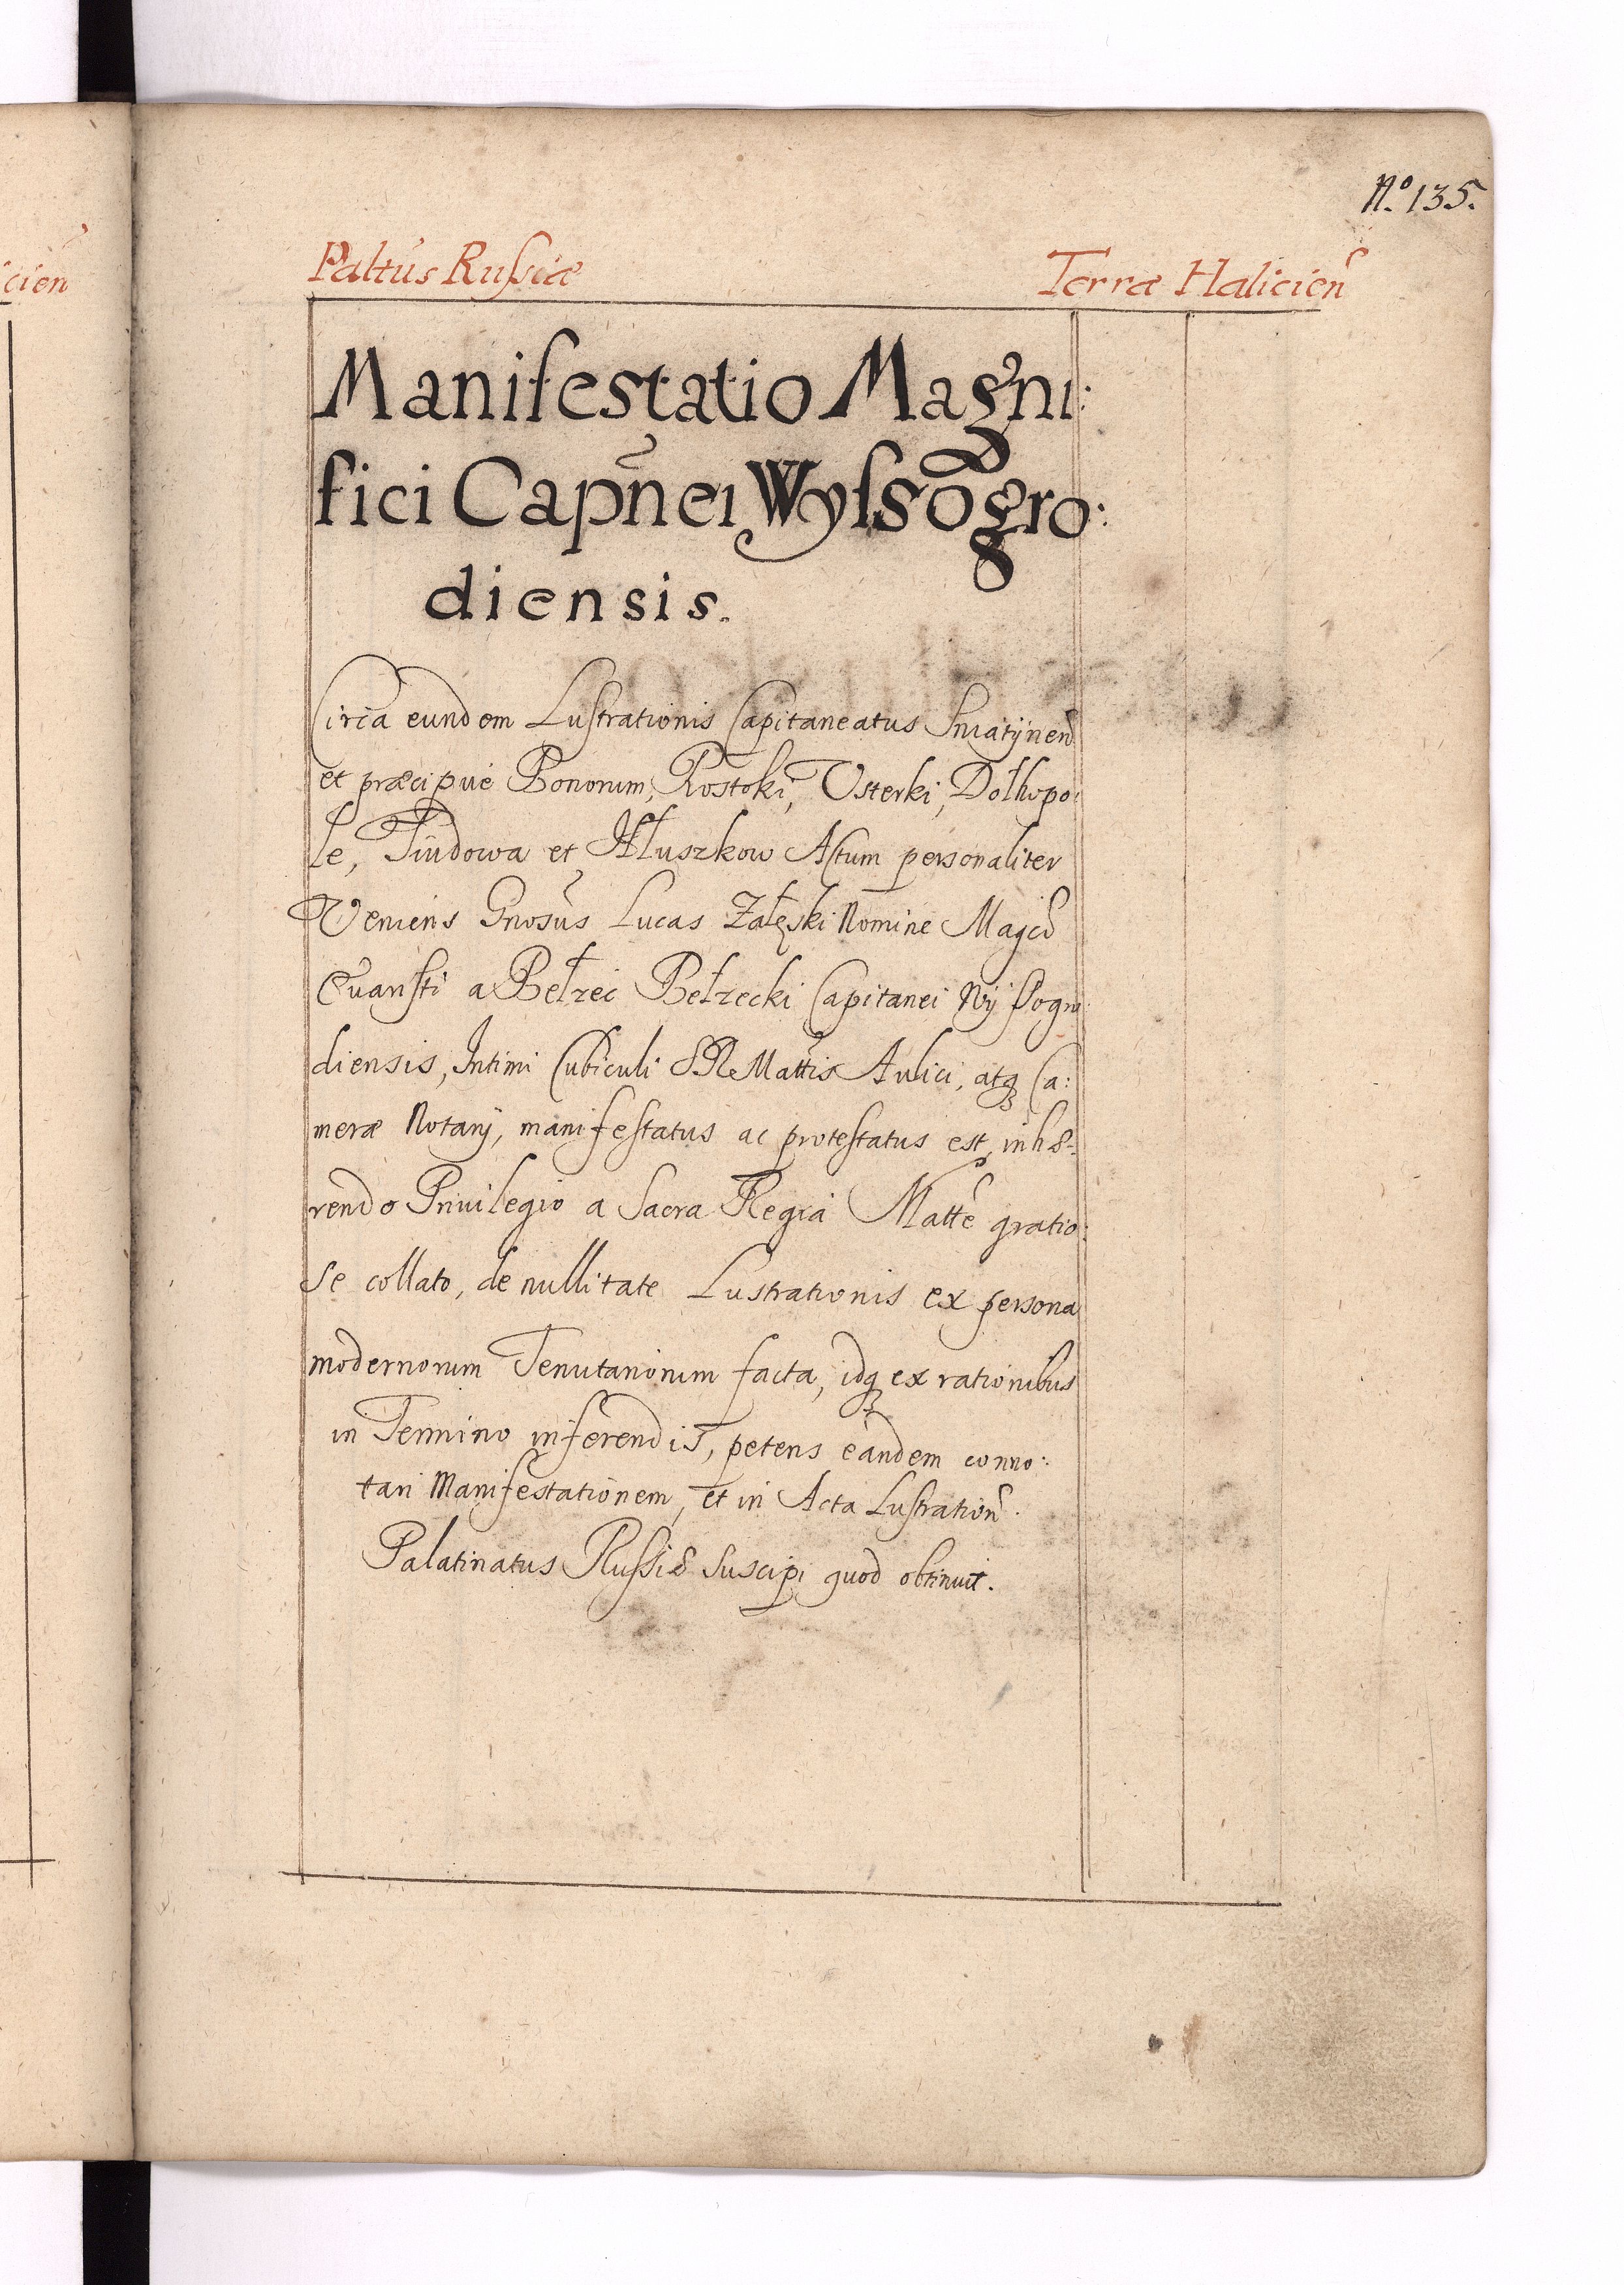 Nº 135.
icien
Paltus Russiæ Terræ Halicien
Manifestatio Magni:
fici Capnei Wyssogro:
diensis.
Circa eundem Lustrationis Capitaneatus Sniatynen
et præcipuè Bonorum, Rostoki, Vsterki, Dołhopo:
le, Tiudowa et Hłuszkow Actum personaliter
Veniens Gnosus Lucas Załęski Nomine Magci
Euaristi a Bełzec Bełzecki Capitanei Wyssogro
diensis, Intimi Cubiculi SRMattis Aulici, atq Ca:
meræ Notarij, manifestatus ac protestatus est, inhæ:
rendo Priuilegio a Sacra Regia Matte gratio:
se collato, de nullitate Lustrationis ex persona
modernorum Tenutariorum facta, idq ex rationibus
in Termino inferendis, petens eandem conno:
tari Manifestationem, et in Acta Lustration.
Palatinatus Russiæ suscipi quod obtinuit.